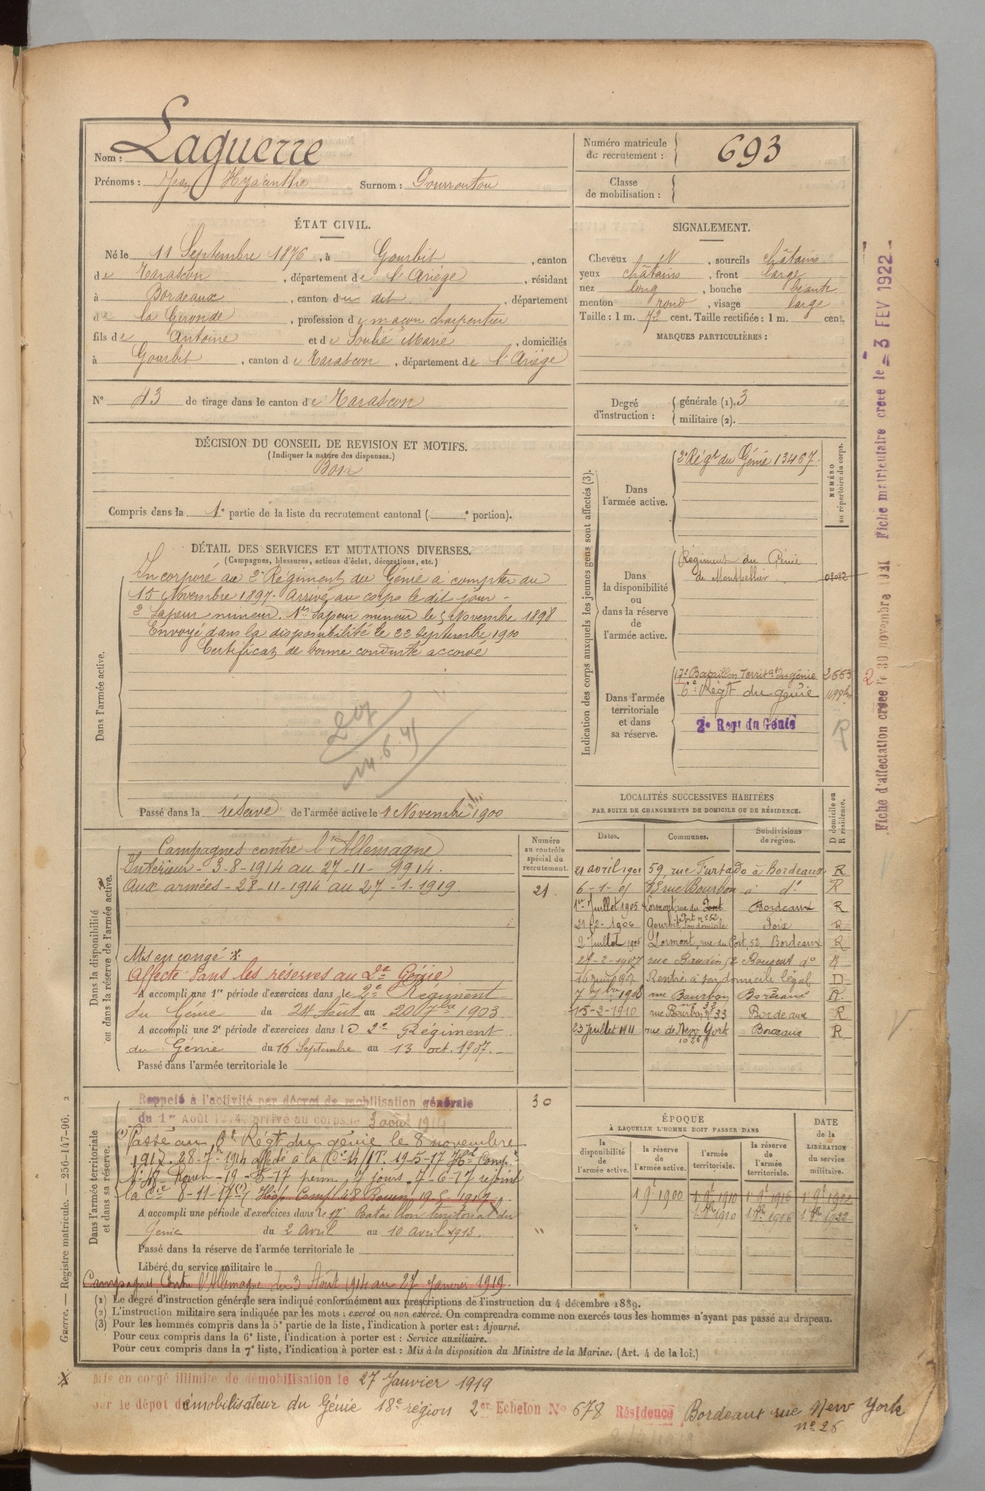 Nom : Laguerre
Prénoms : Jean Hyacinthe Surnom : Gourroutou
Numéro matricule de recrutement : 693
Classe de mobilisation :
ÉTAT CIVIL.
Né le 11 Septembre 1876, à Gourbit, canton
de Tarascon, département de l'Ariège, résidant
à Bordeaux, canton du dit, département
de la Gironde, profession de maçon charpentier
fils de Antoine et de Soulié Marie, domiciliés
à Gourbit, canton de Tarascon, département de l'Ariège
N° 43 de tirage dans le canton de Tarascon
SIGNALEMENT.
Cheveux N, sourcils châtains
yeux châtains, front large
nez long, bouche béante
menton rond, visage large
Taille : 1 m. 72 cent. Taille rectifiée : 1 m. cent.
MARQUES PARTICULIÈRES :
Degré d'instruction : générale (1). 3
militaire (2).
DÉCISION DU CONSEIL DE REVISION ET MOTIFS.
(Indiquer la nature des dispenses.)
Bon
Compris dans la 1e partie de la liste du recrutement cantonal ( e portion).
DÉTAIL DES SERVICES ET MUTATIONS DIVERSES.
(Campagnes, blessures, actions d'éclat, décorations, etc.)
Dans l'armée active.
Incorporé au 2e Régiment du Génie à compter du
15 Novembre 1897. Arrivé au corps le dit jour -
2e Sapeur mineur. 1er Sapeur mineur le 5 Novembre 1898
Envoyé dans la disponibilité le 22 Septembre 1900
Certificat de bonne conduite accordé
14.6.41
Passé dans la réserve de l'armée active le 1 Novembre 1900
Indication des corps auxquels les jeunes gens sont affectés (3).
NUMÉRO au répertoire du corps.
Dans l'armée active.
2e Régt du Génie 13467.
Dans la disponibilité ou dans la réserve de l'armée active.
Régiment du Génie
de Montpellier
Dans l'armée territoriale et dans sa réserve.
17e Bataillon Territal du génie 2663
6e Régt du génie
2e Regt du Génie
R
Dans la disponibilité ou dans la réserve de l'armée active.
Numéro au contrôle spécial du recrutement.
Campagnes contre l'Allemagne
Intérieur - 3-8-1914 au 27-11-1914.
Aux armées - 28-11-1914 au 27-1-1919.
21
Mis en congé *
Affecté dans les réserves au 2e Génie
A accompli une 1re période d'exercices dans le 2e Régiment
du Génie du 24 Août au 20 7bre 1903
A accompli une 2e période d'exercices dans le 2e Régiment
du Génie du 16 Septembre au 13 oct. 1907.
Passé dans l'armée territoriale le
LOCALITÉS SUCCESSIVES HABITÉES
PAR SUITE DE CHANGEMENTS DE DOMICILE OU DE RÉSIDENCE.
Dates. Communes. Subdivisions de région. D domicile ou R résidence.
21 avril 1901 59, rue Furtado à Bordeaux R
6-1-01 rue Bourbon à do R
1er Juillet 1905 Lormont rue du Port Bordeaux R
21-2-1906 Gourbit Foix R
2 Juillet 1906 Lormont, rue du Port, 52, Bordeaux R
27-2-1907 rue do R
Rentré à son domicile légal D
1908 rue Bourbon 33 Bordeaux R
15-2-1910 rue Bourbon 33 Bordeaux R
23 Juillet 1911 rue de New York no 26 Bordeaux R
Dans l'armée territoriale et dans sa réserve.
Rappelé à l'activité par décret de mobilisation générale
du 1er Août 1914. arrivé au corps le 3 août 1914
30
Passé au 6e Régt du génie le 8 novembre
1917. 28-7-1914 affecté à la Cie 19-5-17
7-6-17 rejoint
la Cie 8-11-17
A accompli une période d'exercices dans le 17e Bataillon territorial du
Génie du 2 Avril au 10 avril 1913.
Passé dans la réserve de l'armée territoriale le
Libéré du service militaire le
Campagne Contre l'Allemagne du 3 Août 1914 au 27 Janvier 1919.
ÉPOQUE
À LAQUELLE L'HOMME DOIT PASSER DANS
DATE de la LIBÉRATION du service militaire.
la disponibilité de l'armée active. la réserve de l'armée active. l'armée territoriale. la réserve de l'armée territoriale.
1 9e 1900 1 9e 1910 1 9e 1916 1 9e 1922
(1) Le degré d'instruction générale sera indiqué conformément aux prescriptions de l'instruction du 4 décembre 1889.
(2) L'instruction militaire sera indiquée par les mots : exercé ou non exercé. On comprendra comme non exercés tous les hommes n'ayant pas passé au drapeau.
(3) Pour les hommes compris dans la 5e partie de la liste, l'indication à porter est : Ajourné.
Pour ceux compris dans la 6e liste, l'indication à porter est : Service auxiliaire.
Pour ceux compris dans la 7e liste, l'indication à porter est : Mis à la disposition du Ministre de la Marine. (Art. 4 de la loi.)
* Mis en congé illimité de démobilisation le 27 Janvier 1919
par le dépot démobilisateur du Génie 18e région 2er Echelon No 678 Résidence Bordeaux rue New York
no 26
Guerre. — Registre matricule. — 256-147-96. 2
Fiche d'affectation créée le 30 novembre 1921 Fiche matriculaire créée le 3 FEV 1922